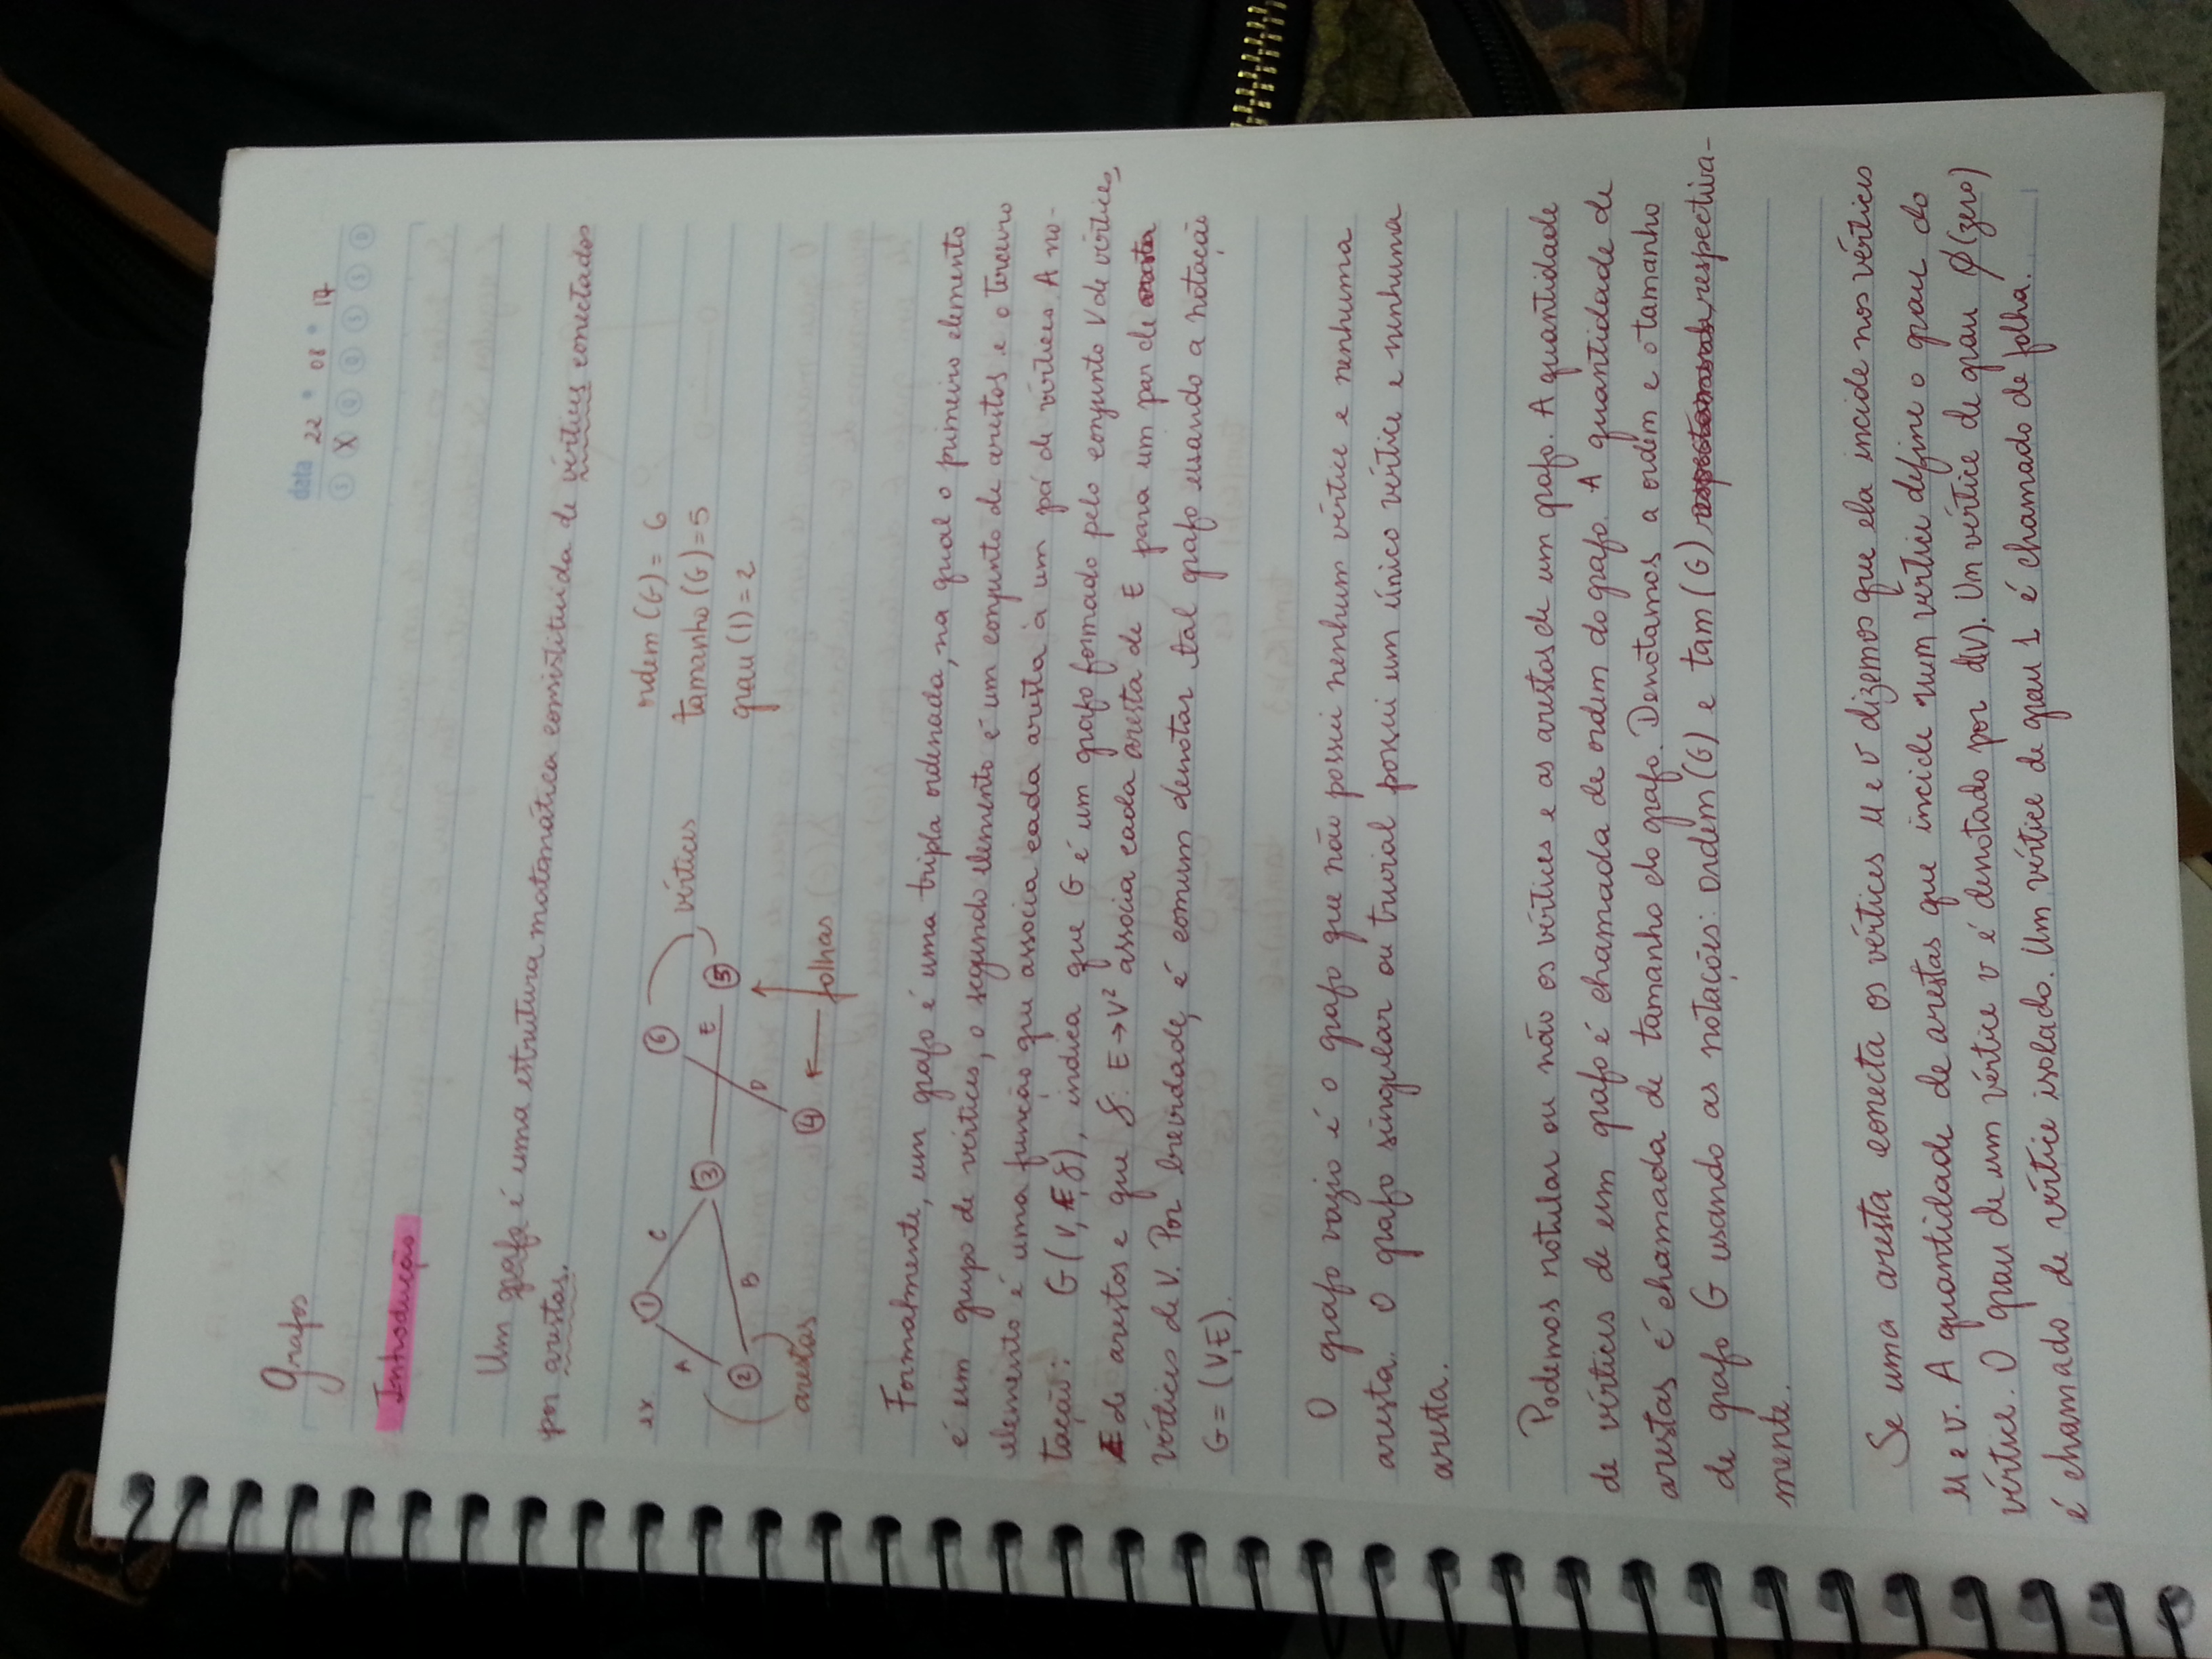 Grafos
data 22 08 17
S X Q Q S S D
Introdução
Um grafo é uma estrutura matemática consistituida de vértices conectados
por arestas.
ex.
1 C 6 vértices
A 3 E 5
2 B D
arestas 4 folhas
ordem (G) = 6
tamanho (G) = 5
grau (1) = 2
Formalmente, um grafo é uma tripla ordenada, na qual o primeiro elemento
é um grupo de vértices, o segundo elemento é um conjunto de arestas e o terceiro
elemento é uma função que associa cada aresta à um pá de vértices. A no-
tação: G(V, E, γ), indica que G é um grafo formado pelo conjunto V de vértices,
E de arestas e que γ: E → V² associa cada aresta de E para um par de
vértices de V. Por brevidade, é comum denotar tal grafo usando a notação
G = (V,E).
O grafo vazio é o grafo que não possui nenhum vértice e nenhuma
aresta. O grafo singular ou trivial possui um único vértice e nenhuma
aresta.
Podemos rotular ou não os vértices e as arestas de um grafo. A quantidade
de vértices de um grafo é chamada de ordem do grafo. A quantidade de
arestas é chamada de tamanho do grafo. Denotamos a ordem e o tamanho
de grafo G usando as notações: ordem (G) e tam (G) respectiva-
mente.
Se uma aresta conecta os vértices u e v dizemos que ela incide nos vértices
u e v. A quantidade de arestas que incide num vértice define o grau do
vértice. O grau de um vértice v é denotado por d(V). Um vértice de grau Ø (zero)
é chamado de vértice isolado. Um vértice de grau 1 é chamado de folha.